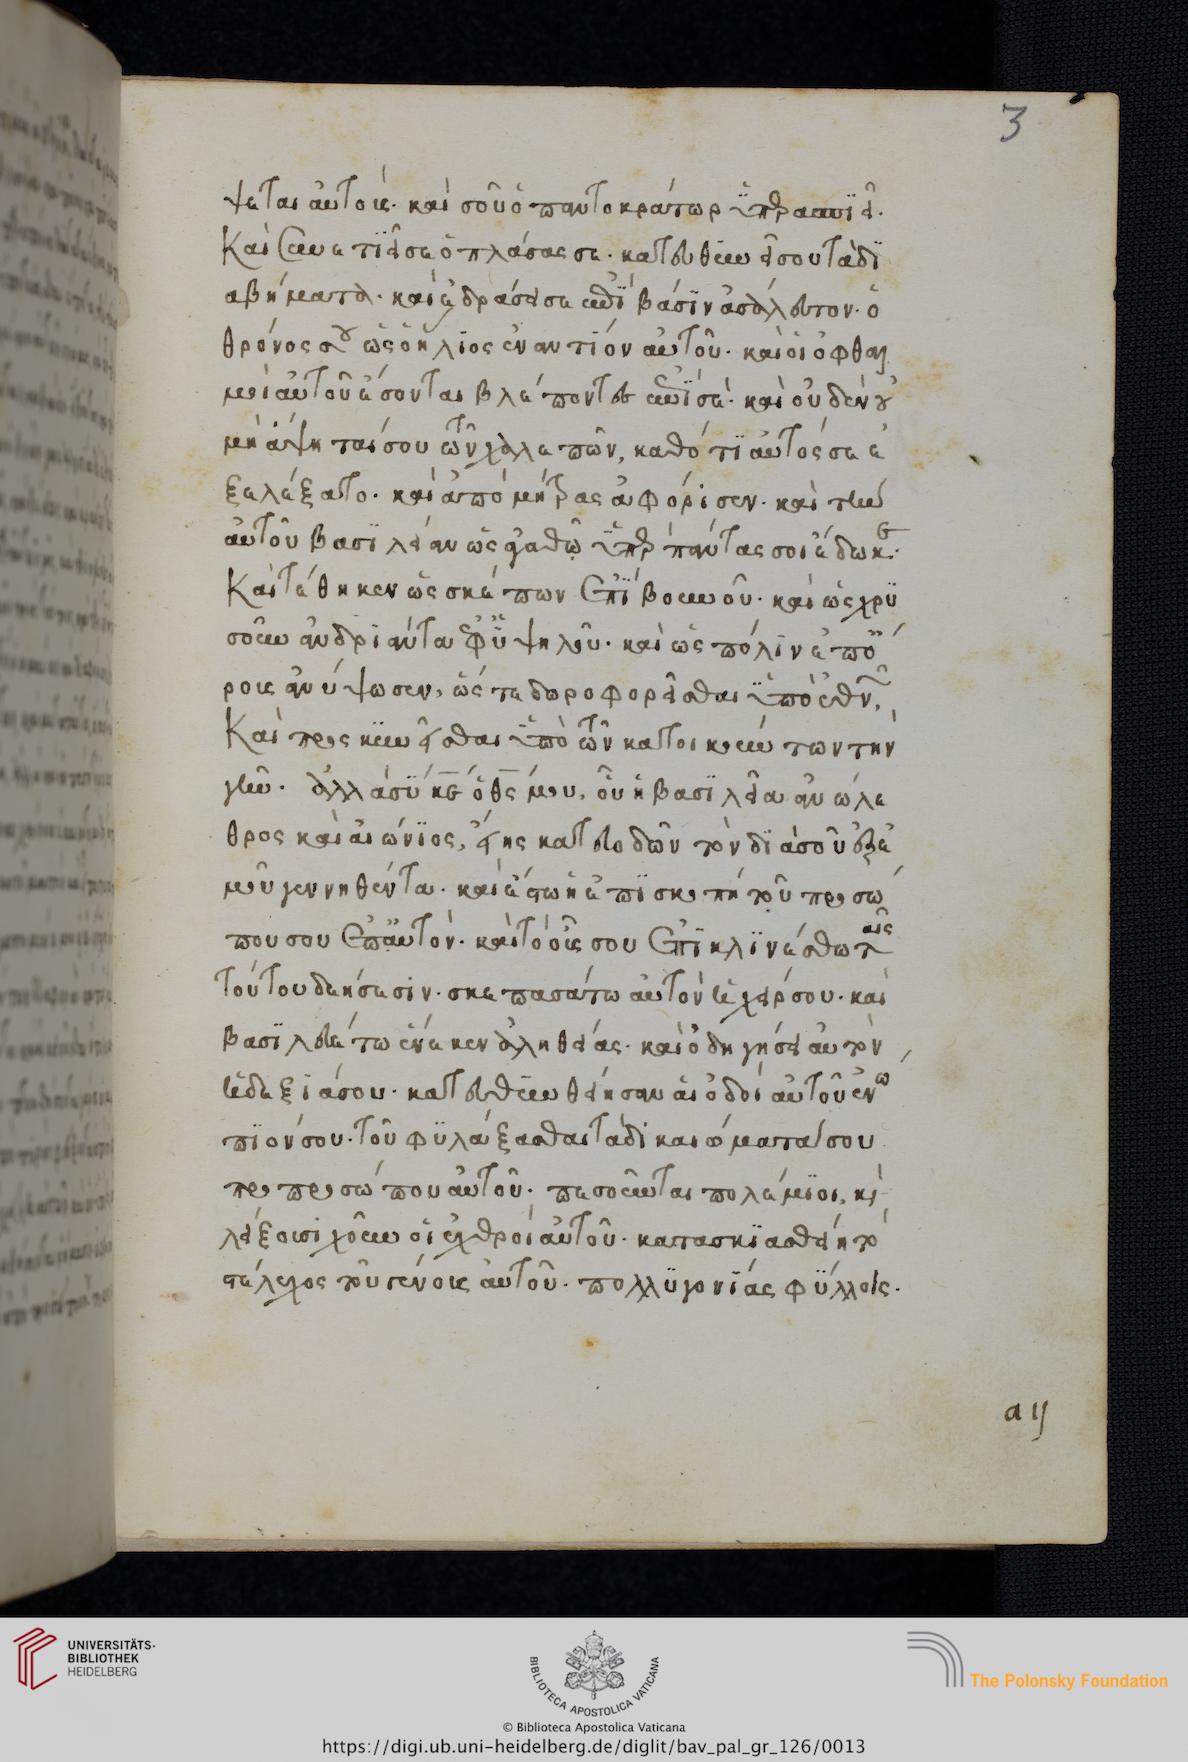 3
ψεται αὐτοῖς. καὶ σοῦ ὁ παντοκράτωρ ὑπερασπιεῖ.
Καὶ συνετιεῖ σε ὁ πλάσας σε. κατευθυνεῖ σου τὰ δι
αβήματα. καὶ ἑδράσει σε ἐπὶ βάσιν ἀσάλευτον. ὁ
θρόνος σου ὡς ὁ ἥλιος ἐναντίον αὐτοῦ. καὶ οἱ ὀφθαλ
μοὶ αὐτοῦ ἔσονται βλέποντες ἐπί σε. καὶ οὐδὲν οὐ
μὴ ἅψηταί σου τῶν χαλεπῶν, καθότι αὐτός σε ἐ
ξελέξατο. καὶ ἀπὸ μήτρας ἀφόρισεν. καὶ τὴν
αὐτοῦ βασιλείαν ὡς ἀγαθῷ ὑπὲρ πάντας σοι ἔδωκε.
Καὶ τέθηκεν ὡς σκέπην ἐπὶ βουνοῦ. καὶ ὡς χρυ
σοῦν ἀνδριάντα ἐφ' ὑψηλοῦ. καὶ ὡς πόλιν ἐπ' ὄ
ροις ἀνύψωσεν, ὥστε δωροφορεῖσθαι ὑπὸ ἐθνῶν,
Καὶ προσκυνεῖσθαι ὑπὸ τῶν κατοικούντων τὴν
γῆν. ἀλλὰ σὺ κε ὁ θς μου, οὗ ἡ βασιλεία ἀνώλε
θρος καὶ αἰώνιος, εἴης κατευοδῶν τὸν διὰ σοῦ ἐξ ἐ
μοῦ γεννηθέντα. καὶ ἔστω ἡ ἐπισκοπὴ τοῦ προσώ
που σου ἐπ' αὐτόν. καὶ τὸ οὖς σου ἐπικλινέσθω ταῖς
τούτου δεήσεσιν. σκεπασάτω αὐτὸν ἡ χείρ σου. καὶ
βασιλευέτω ἕνεκεν ἀληθείας. καὶ ὁδηγήσει αὐτὸν
ἡ δεξιά σου. κατευθυνθείησαν αἱ ὁδοὶ αὐτοῦ ἐνώ
πιόν σου. τοῦ φυλάξασθαι τὰ δικαιώματά σου
πρὸ προσώπου αὐτοῦ. πεσοῦνται πολέμιοι, καὶ
λείξουσι χοῦν οἱ ἐχθροὶ αὐτοῦ. κατασκιασθείη τὸ
στέλεχος τοῦ γένους αὐτοῦ. πολλυγονίας φύλλοις.
a ij
UNIVERSITÄTS-
BIBLIOTHEK
HEIDELBERG
BIBLIOTECA APOSTOLICA VATICANA
The Polonsky Foundation
© Biblioteca Apostolica Vaticana
https://digi.ub.uni-heidelberg.de/diglit/bav_pal_gr_126/0013